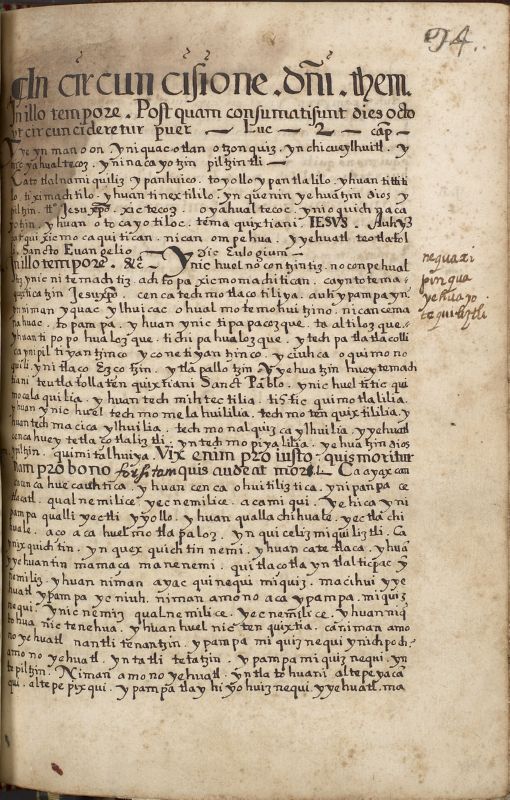 94.
In circuncisione . dñi . them.
In illo tempore . Post quam consumati sunt dies octo
ut circuncideretur puer — Luc — 2 — cap —
yn man oon . yn iquac otlan otzonquiz . yn chicueylhuitl . y
yahualtecoz . yn inacayotzin piltzintli —
Cato tlalnamiquiliz y panhuico . toyollo y pantlalilo . yhuan
ti ximachtilo . yhuan tinextililo . yn quenin yehuatzin dios y
piltzin . Jesu xpo . xictecoz . oyahualtecoc . yn ioquichnaca
yotzin . yhuan otocayotiloc . tema quixtiani IESVS . Auh
qui xicmocaquitican . nican ompehua . yyehuatl teotlatol
Sancto Euangelio —
In illo tempore . &c — Dic Eulogium —
Ynic huel nocontzintiz . noconpehual
tiz ynic nitemachtiz . achtopa xicmomachitican . cayntotema
quixticatzin Jesu xpo . cenca techmotlaçotiliya . auh ypampa yn
yniman yquac ylhuicac ohualmotemohuitzino . nican cema
nahuac . topampa . yhuan ynic tipapacozque . taaltilozque .
yhuan tipopohualozque . tichipahualozque . ytech patlatlacolli
ca yn ipiltiyantzinco yconetiyantzinco . yçiuhca oquimono
quili . yn itlaço Ezçotzin . ytlapallotzin yyehuatzin hueytemach
tiani teutlatollaten quixtiani Sanct Pablo . ynic hueltitic qui
mocalaquilia . yhuan techmihtectilia . tistic quimotlalilia .
yhuan ynic huel techmomelahuililia . techmoten quixtililia . y
huan techmacicaylhuilia . techmonalquizcaylhuilia . yyehuatl
cenca huey tetlaçotlaliztli . yntechmopiyalilia . yehuatzin dios
ypiltzin . quimitalhuiya . Vix enim pro iusto . quis moritur
nam pro bono forsitam quis audeat mori . Ca ayaxcan
ca canca huecauhtica . yhuan cenca ohuitiliztica . yn ipanpa ce
tlacatl . qualnemilice yecnemilice . aca miqui . Yehica yni
pampa qualli yectli yyollo . yhuan quallachihuale . yectlachi
huale . aco aca huelmotlapaloz . yn quiceliz miquiliztli . Ca
yn ixquichtin . yn quexquichtin nemi . yhuan catetlaca . yhua
yehuantin mamaca manenemi . quitlacotla yn tlalticpac y
nemiliz . yhuan niman ayac quinequi miquiz . macihui yye
huatl ypampa ycniuh . niman amono aca ypampa . miquiz
nequi . ynic nemiz qualnemilice . yecnemilice . yhuan miq
tohua nictenehua . yhuan huel nictenquixtia . ca niman amo
no yehuatl nantli tenantzin . ypampa miquiznequi yn ichpoch .
amono yehuatl . yntatli tetatzin . ypampa miquiz nequi . yn
tepiltzin . Niman amono yehuatl . yntlatohuani altepeyaca
qui . altepepixqui . ypampa tlayhiyohuiznequi yyehuatl . ma
nequazi
pinqua
yehuayo
tequiliztli